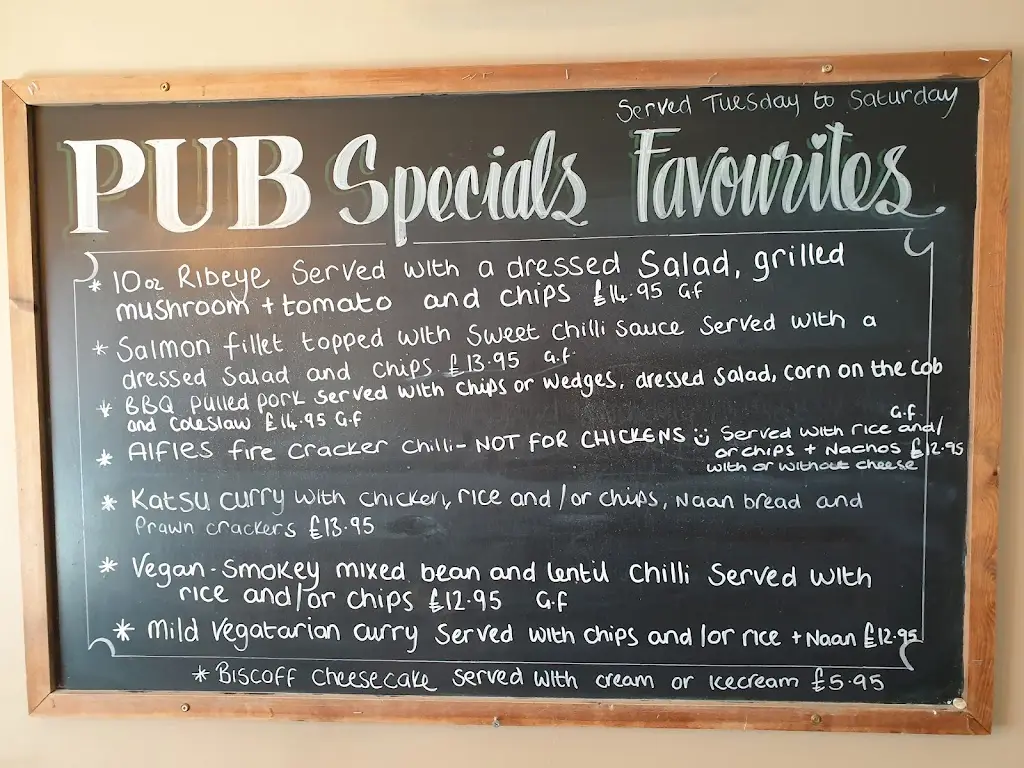 Served Tuesday to Saturday
PUB Specials Favourites.
* 10oz Ribeye Served with a dressed Salad, grilled
mushroom + tomato and chips £14.95 G.f
* Salmon fillet topped with Sweet chilli sauce Served with a
dressed Salad and chips £13.95 G.f.
* BBQ pulled pork served with chips or wedges, dressed salad, corn on the cob
and Coleslaw £14.95 G.f
* Alfies fire cracker chilli - NOT FOR CHICKENS Served with rice and/
G.f
or chips + Nachos £12.95
with or without cheese
* Katsu curry with chicken, rice and/or chips, Naan bread and
Prawn crackers £13.95
* Vegan - Smokey mixed bean and lentil chilli Served with
rice and/or chips £12.95 G.f
* Mild Vegatarian curry Served with chips and/or rice + Naan £12.95
* Biscoff cheesecake served with cream or icecream £5.95